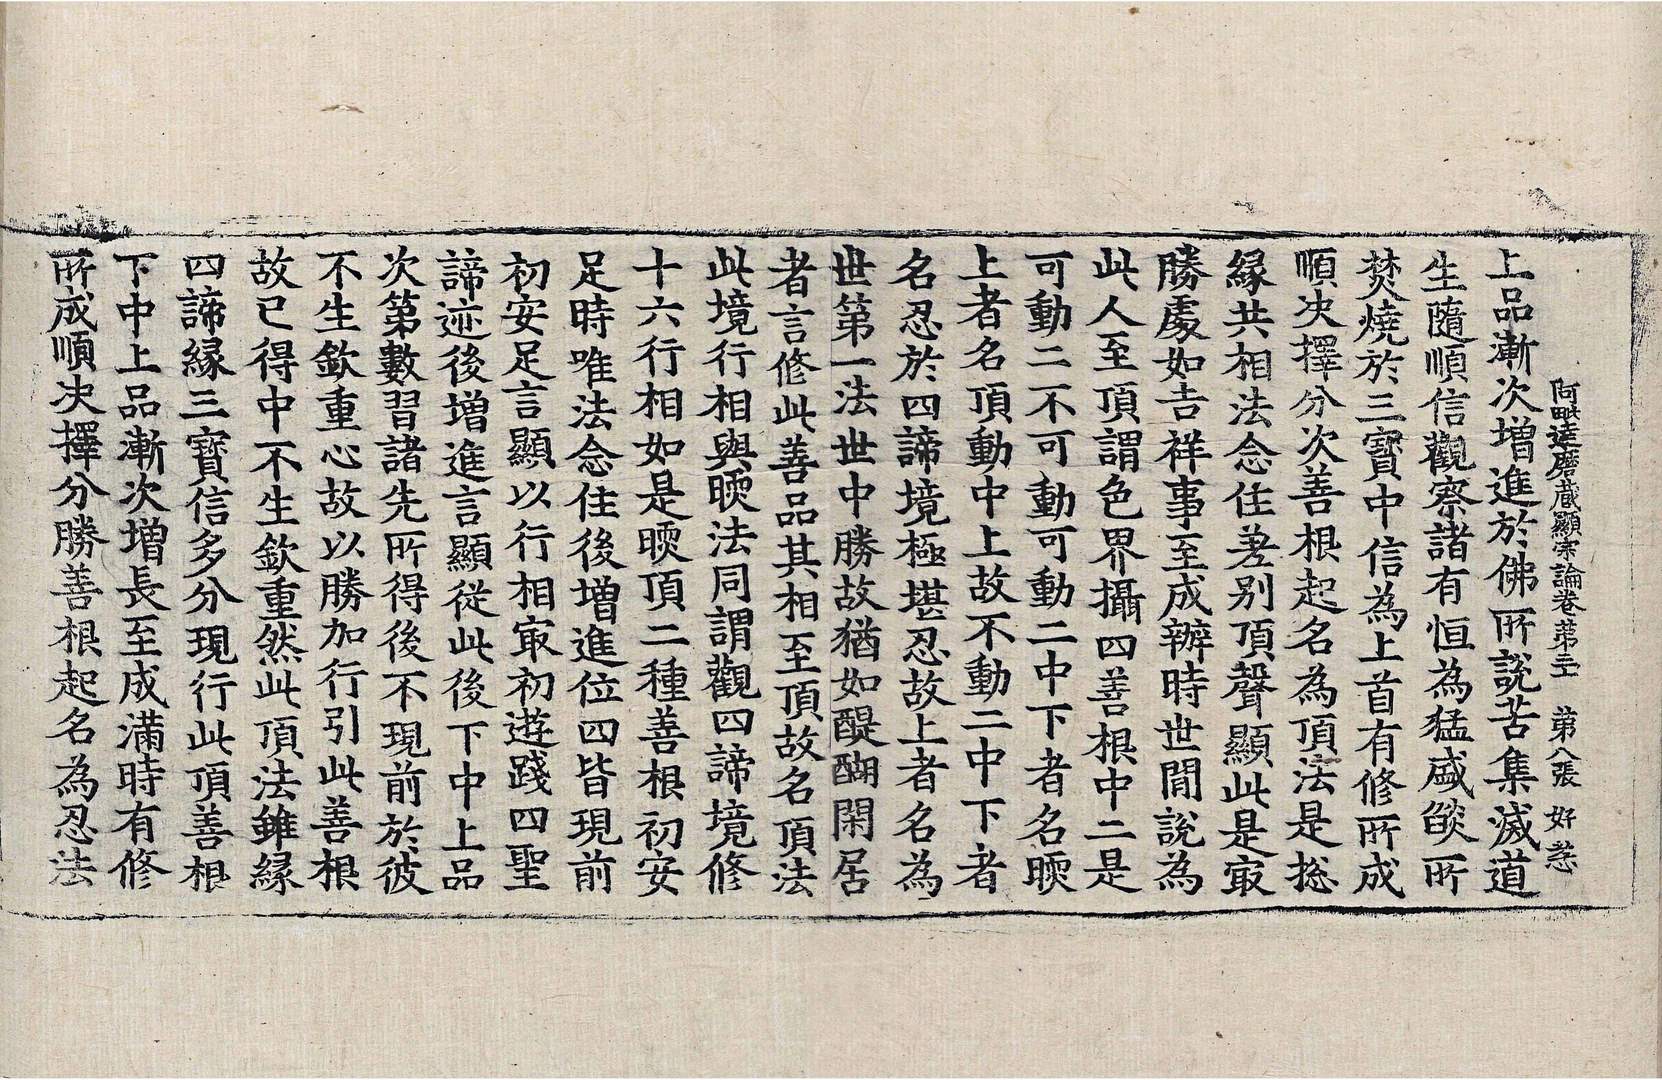 阿毗達磨藏顯宗論卷第三十　第八張　好惹
上品漸次增進於佛所說苦集滅道
生隨順信觀察諸有恒為猛盛燄所
焚燒於三寶中信為上首有修所成
順決擇分次善根起名為頂法是揔
緣共相法念住差別頂聲顯此是㝡
勝處如吉祥事至成辦時世間說為
此人至頂謂色界攝四善根中二是
可動二不可動可動二中下者名暖
上者名頂動中上故不動二中下者
名忍於四諦境極堪忍故上者名為
世第一法世中勝故猶如醍醐閑居
者言修此善品其相至頂故名頂法
此境行相與暖法同謂觀四諦境修
十六行相如是暖頂二種善根初安
足時唯法念住後增進位四皆現前
初安足言顯以行相㝡初遊踐四聖
諦迹後增進言顯從此後下中上品
次第數習諸先所得後不現前於彼
不生欽重心故以勝加行引此善根
故已得中不生欽重然此頂法雖緣
四諦緣三寶信多分現行此頂善根
下中上品漸次增長至成滿時有修
所成順決擇分勝善根起名為忍法